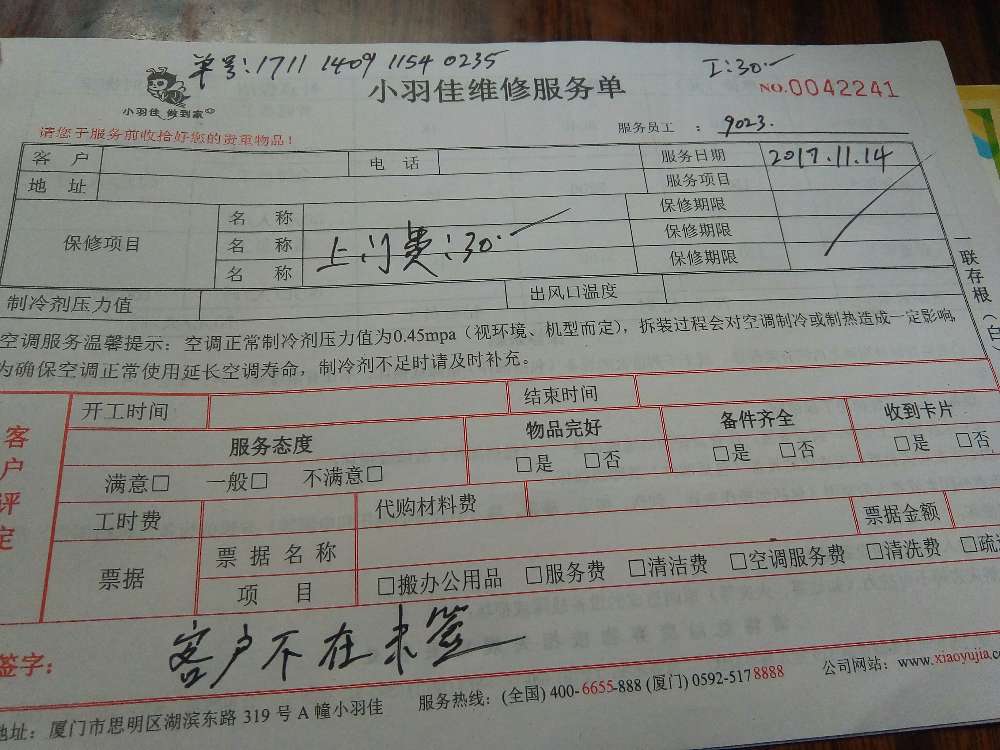 单号:1711 1409 1154 0235
工:30.-
小羽佳 做到家
小羽佳维修服务单
NO.0042241
请您于服务前收拾好您的贵重物品！
服务员工 : 9023.
客 户 电 话 服务日期 2017.11.14
地 址 服务项目
保修项目
名 称 保修期限
名 称 上门费:30.- 保修期限
名 称 保修期限
制冷剂压力值 出风口温度
一联存根（白）
空调服务温馨提示：空调正常制冷剂压力值为0.45mpa（视环境、机型而定），拆装过程会对空调制冷或制热造成一定影响,
为确保空调正常使用延长空调寿命，制冷剂不足时请及时补充。
客户评定
开工时间 结束时间
服务态度 物品完好 备件齐全 收到卡片
满意□ 一般□ 不满意□ □是 □否 □是 □否 □是 □否
工时费 代购材料费 票据金额
票据 票据名称
项 目 □搬办公用品 □服务费 □清洁费 □空调服务费 □清洗费 □疏
签字： 客户不在未签
地址：厦门市思明区湖滨东路 319 号 A 幢小羽佳 服务热线：(全国) 400-6655-888 (厦门) 0592-5178888 公司网站：www.xiaoyujia.co